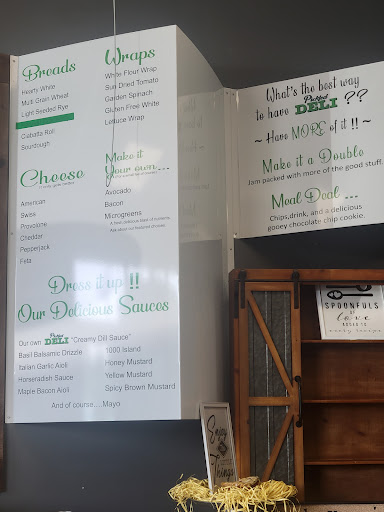 Breads
Hearty White
Multi Grain Wheat
Light Seeded Rye
Ciabatta Roll
Sourdough
Wraps
White Flour Wrap
Sun Dried Tomato
Garden Spinach
Gluten Free White
Lettuce Wrap
Cheese
American
Swiss
Provolone
Cheddar
Pepperjack
Feta
Make it
Your own...
Avocado
Bacon
Microgreens
Dress it up !!
Our Delicious Sauces
Our own Pickled DELI "Creamy Dill Sauce"
Basil Balsamic Drizzle
Italian Garlic Aioli
Horseradish Sauce
Maple Bacon Aioli
1000 Island
Honey Mustard
Yellow Mustard
Spicy Brown Mustard
And of course....Mayo
What's the best way
to have Pickled DELI ??
~ Have MORE of it !! ~
Make it a Double
Jam packed with more of the good stuff.
Meal Deal ...
Chips,drink, and a delicious
gooey chocolate chip cookie.
SPOONFULS
OF
love
Enjoy
Things